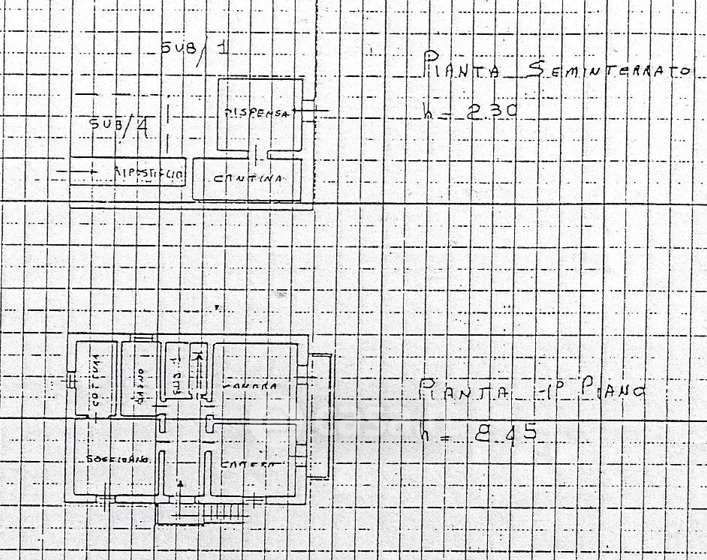 SUB/1
PIANTA SEMINTERRATO
h = 2.30
DISPENSA
SUB/4
RIPOSTIGLIO
CANTINA
COTTURA
BAGNO
SUB/1
CAMERA
PIANTA 1° PIANO
h = 2.45
SOGGIORNO
CAMERA